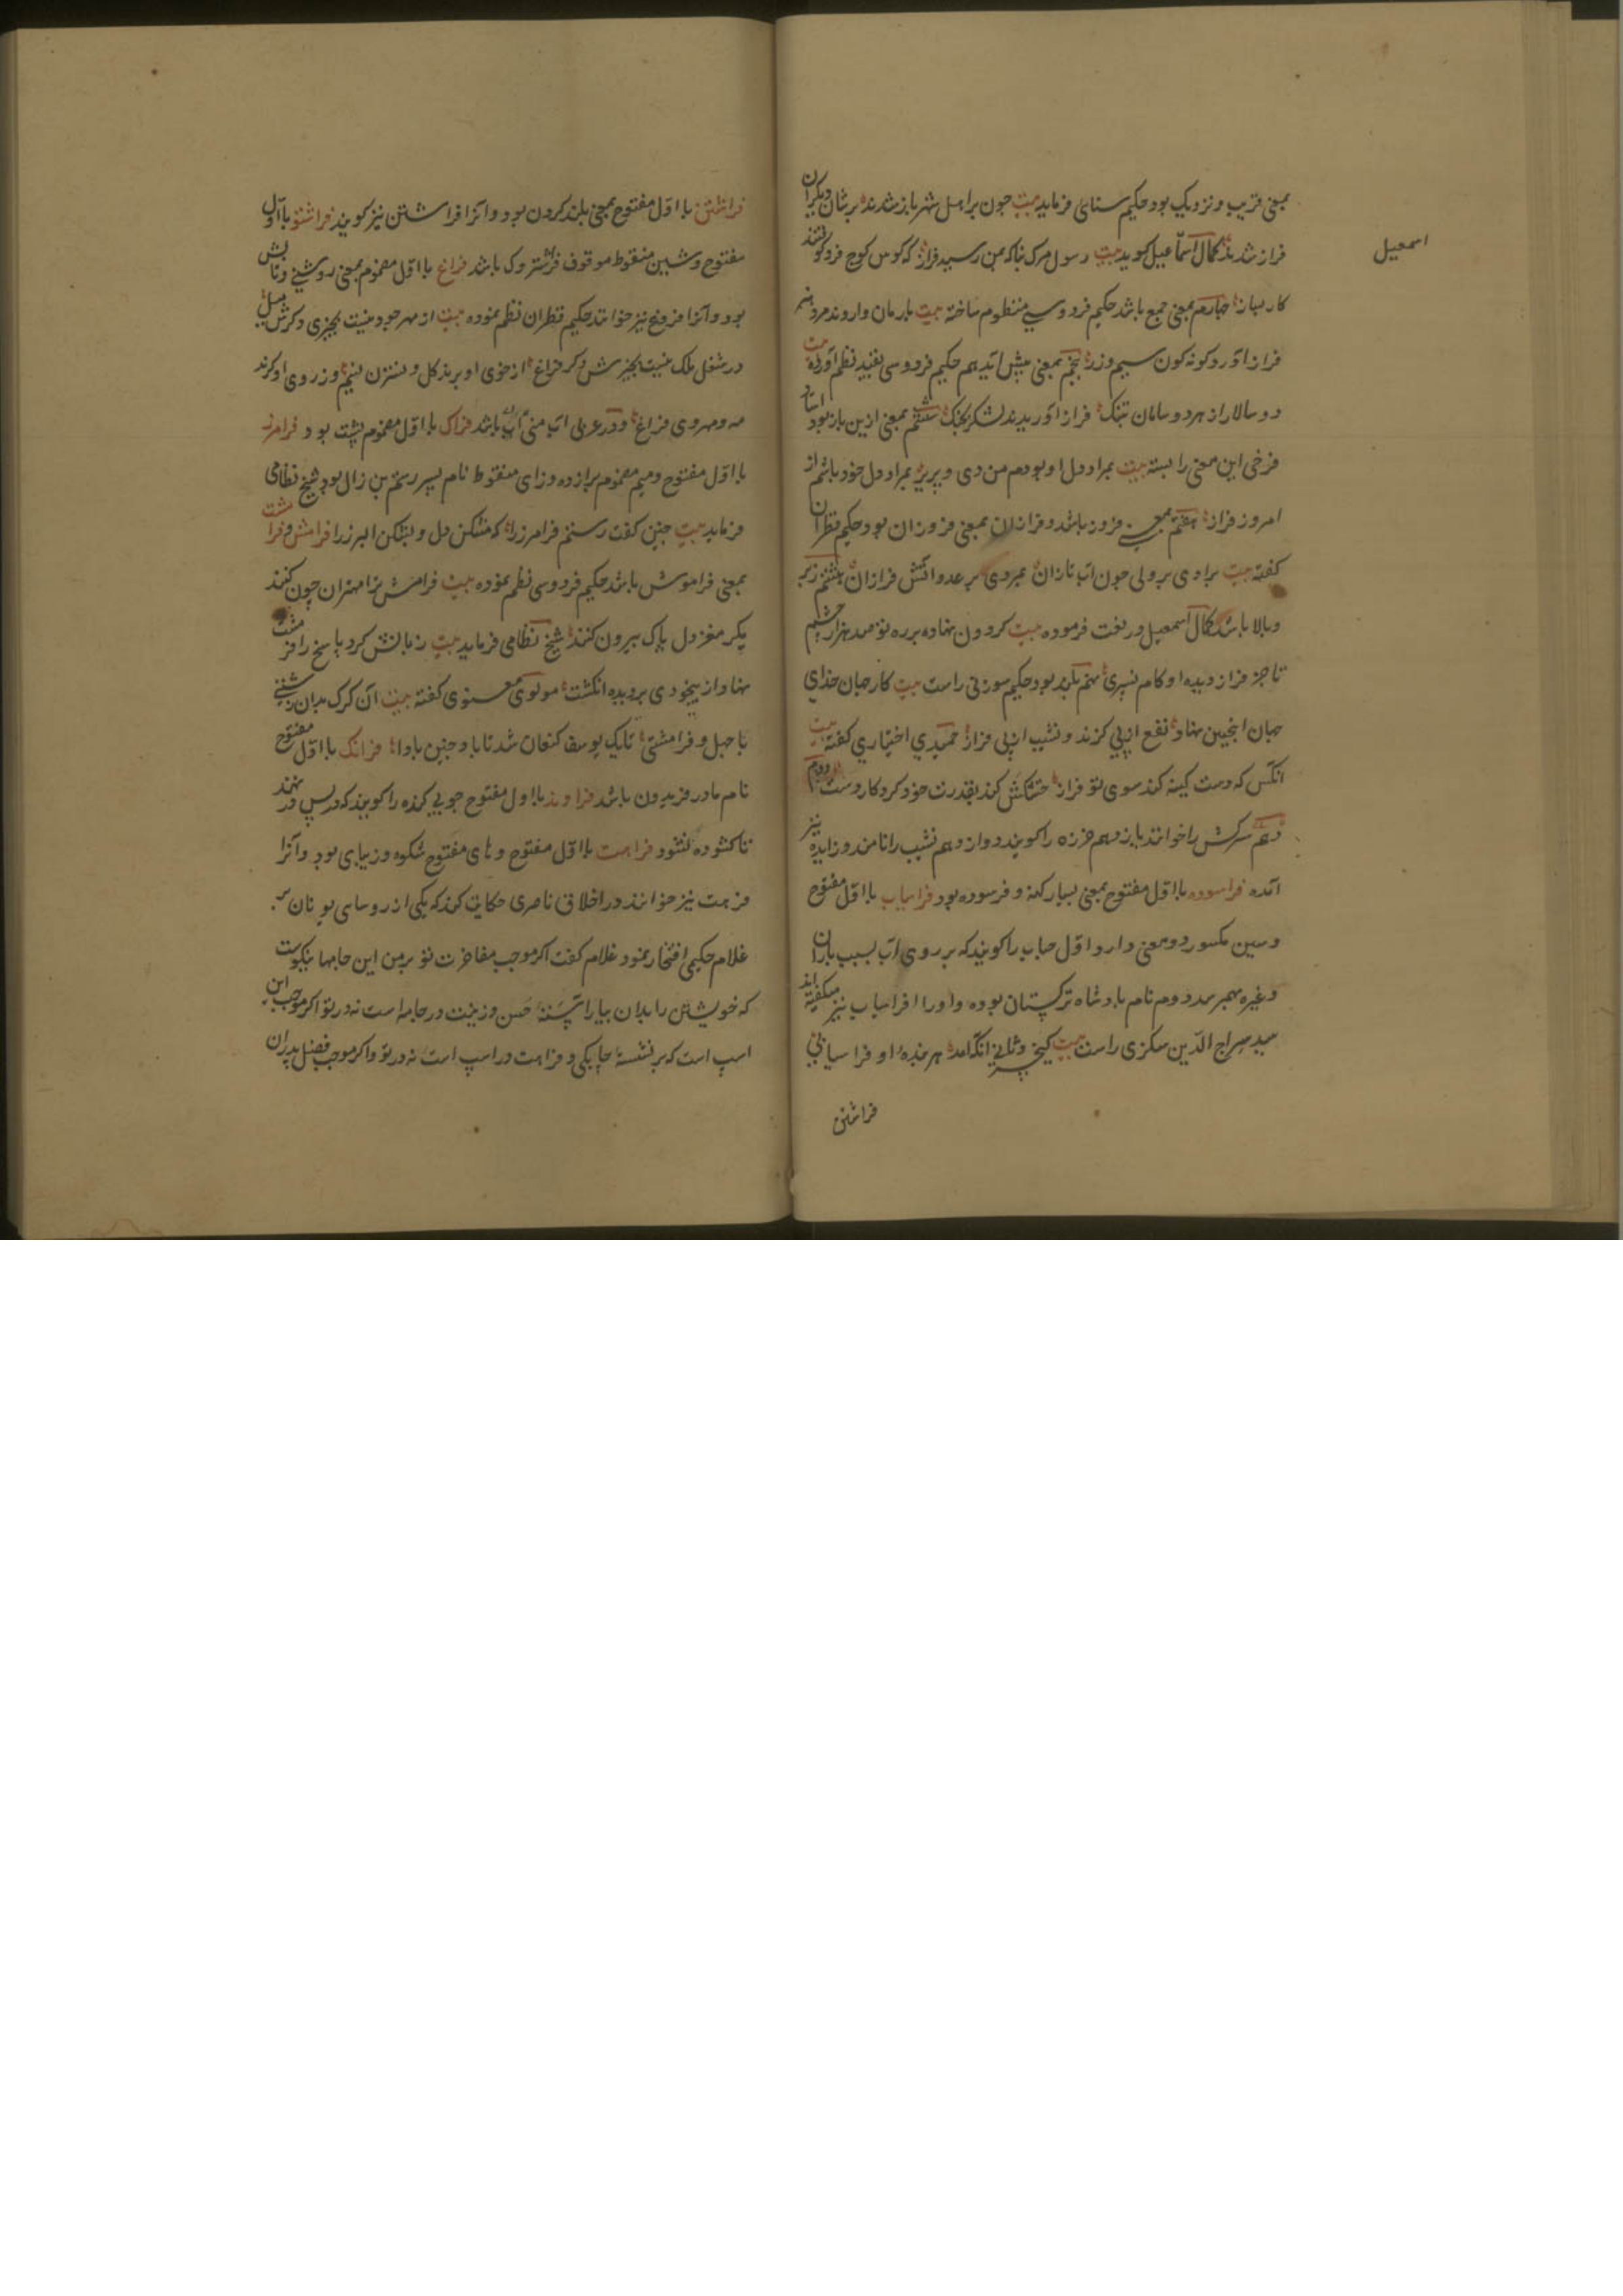 بمعنی قریب و نزدیک بود حکیم سنای فرماید بیت چون بر اهل شهر باز شدند بر شان دیکران
فراز شدند کمال اسماعیل کوید بیت رسول مرک بناکه بمن رسید فراز که کوس کوچ فرو کوفتند
اسمعیل
کار بساز چهارم بمعنی جمع باشد حکیم فردوسی منظوم ساخته بیت بارمان
فراز آورد کونه کون سیم و زر پنجم بمعنی پیش آید هم حکیم فردوسی بقید نظم آورده بیت
دو سالار از هر دو سامان تنک فراز آوریدند لشکر بجنک ششم بمعنی ازین باز بود استاد
فرخی این معنی را بسته بیت بمراد دل او بودم من دی و پریر بمراد دل خود باشم از
امروز فراز هفتم بمعنی فروز باشد و فرازان بمعنی فروزان بود حکیم قطران
کفته بیت برادی بر ولی چون آب نازان بمردی بر عدو آتش فرازان هشتم زبر
و بالا باشد کمال اسمعیل در نعت فرموده بیت کردون نهاده بر ره تو صد هزار چشم
تا جز فراز دیده او کام نسپری نهم بلند بود حکیم سوزنی راست بیت کار جهان خدای
جهان اینچنین نهاد نفع از پی کزند و نشیب از پی فراز دهم اختیاری کفته بیت
آنکس که دست کینه کند سوی تو فراز کند بقدرت خود کردکار دست
سرکش را خوانند یازدهم خرزه را کویند دوازدهم نشیب را نامند و زایده نیز
آمده فراسوده با اول مفتوح بمعنی بسیار کهنه و فرسوده بود فراسیاب با اول مفتوح
و سین مکسور دو معنی دارد اول حباب را کویند که بر روی آب بسبب باران
و غیره بهم رسد دوم نام بادشاه ترکستان بوده و او را افراسیاب نیز میکفته اند
سید سراج الدین سکزی راست بیت کیخسرو ثانی آنکه آمد هر بنده او فراسیابی
فراشتن
فراشتن با اول مفتوح بمعنی بلند کردن بود و آنرا افراشتن نیز کویند فراشتو با اول
مفتوح و شین منقوط موقوف فرشتروک باشد فراغ با اول مضموم بمعنی روشنی و تابش
بود و آنرا فروغ نیز خوانند حکیم قطران نظم نموده بیت از مهر جود نیست بچیزی دکرش میل
در شغل ملک نیست بچیزیش دکر فراغ از خوی او برند کل و نسترن نسیم وز روی او کرند
مه و مهر وی فراغ و در عربی آب منی باشد فراک با اول مضموم پشت بود فرامرز
با اول مفتوح و میم مضموم برا زده و زای منقوط نام پسر رستم بن زال بود شیخ نظامی
فرماید بیت چنین کفت رستم فرامرز را که مشکن دل و بشکن البرز را فرامش و فرامشت
بمعنی فراموش باشد حکیم فردوسی نظم نموده بیت فرامش ترا مهتران چون کنند
مکر مغز دل پاک بیرون کنند شیخ نظامی فرماید بیت زبانش کرد پاسخ را فرامشت
نهاد از بیخودی بر دیده انکشت مولوی معنوی کفته بیت آن کرک بدان زشتی
با جهل و فرامشتی نک یوسف کنعان شد تا باد چنین بادا فرانک با اول مفتوح
نام مادر فریدون باشد فراوند با اول مفتوح چوبی کنده را کویند که در پس در نهند
تا کشوده نشود فراهت با اول مفتوح و های مفتوح شکوه و زیبای بود و آنرا
فرهت نیز خوانند در اخلاق ناصری حکایت کند که یکی از روسای یونان بر
غلام حکیمی افتخار نمود غلام کفت اکر موجب مفاخرت تو بر من این جامها نیکوست
که خویشتن را بدان بیاراسته حسن و زینت در جامه است نه در تو اکر موجب این
اسپ است که بر نشسته چابکی و فراهت در اسپ است نه در تو و اکر موجب فضل پدران